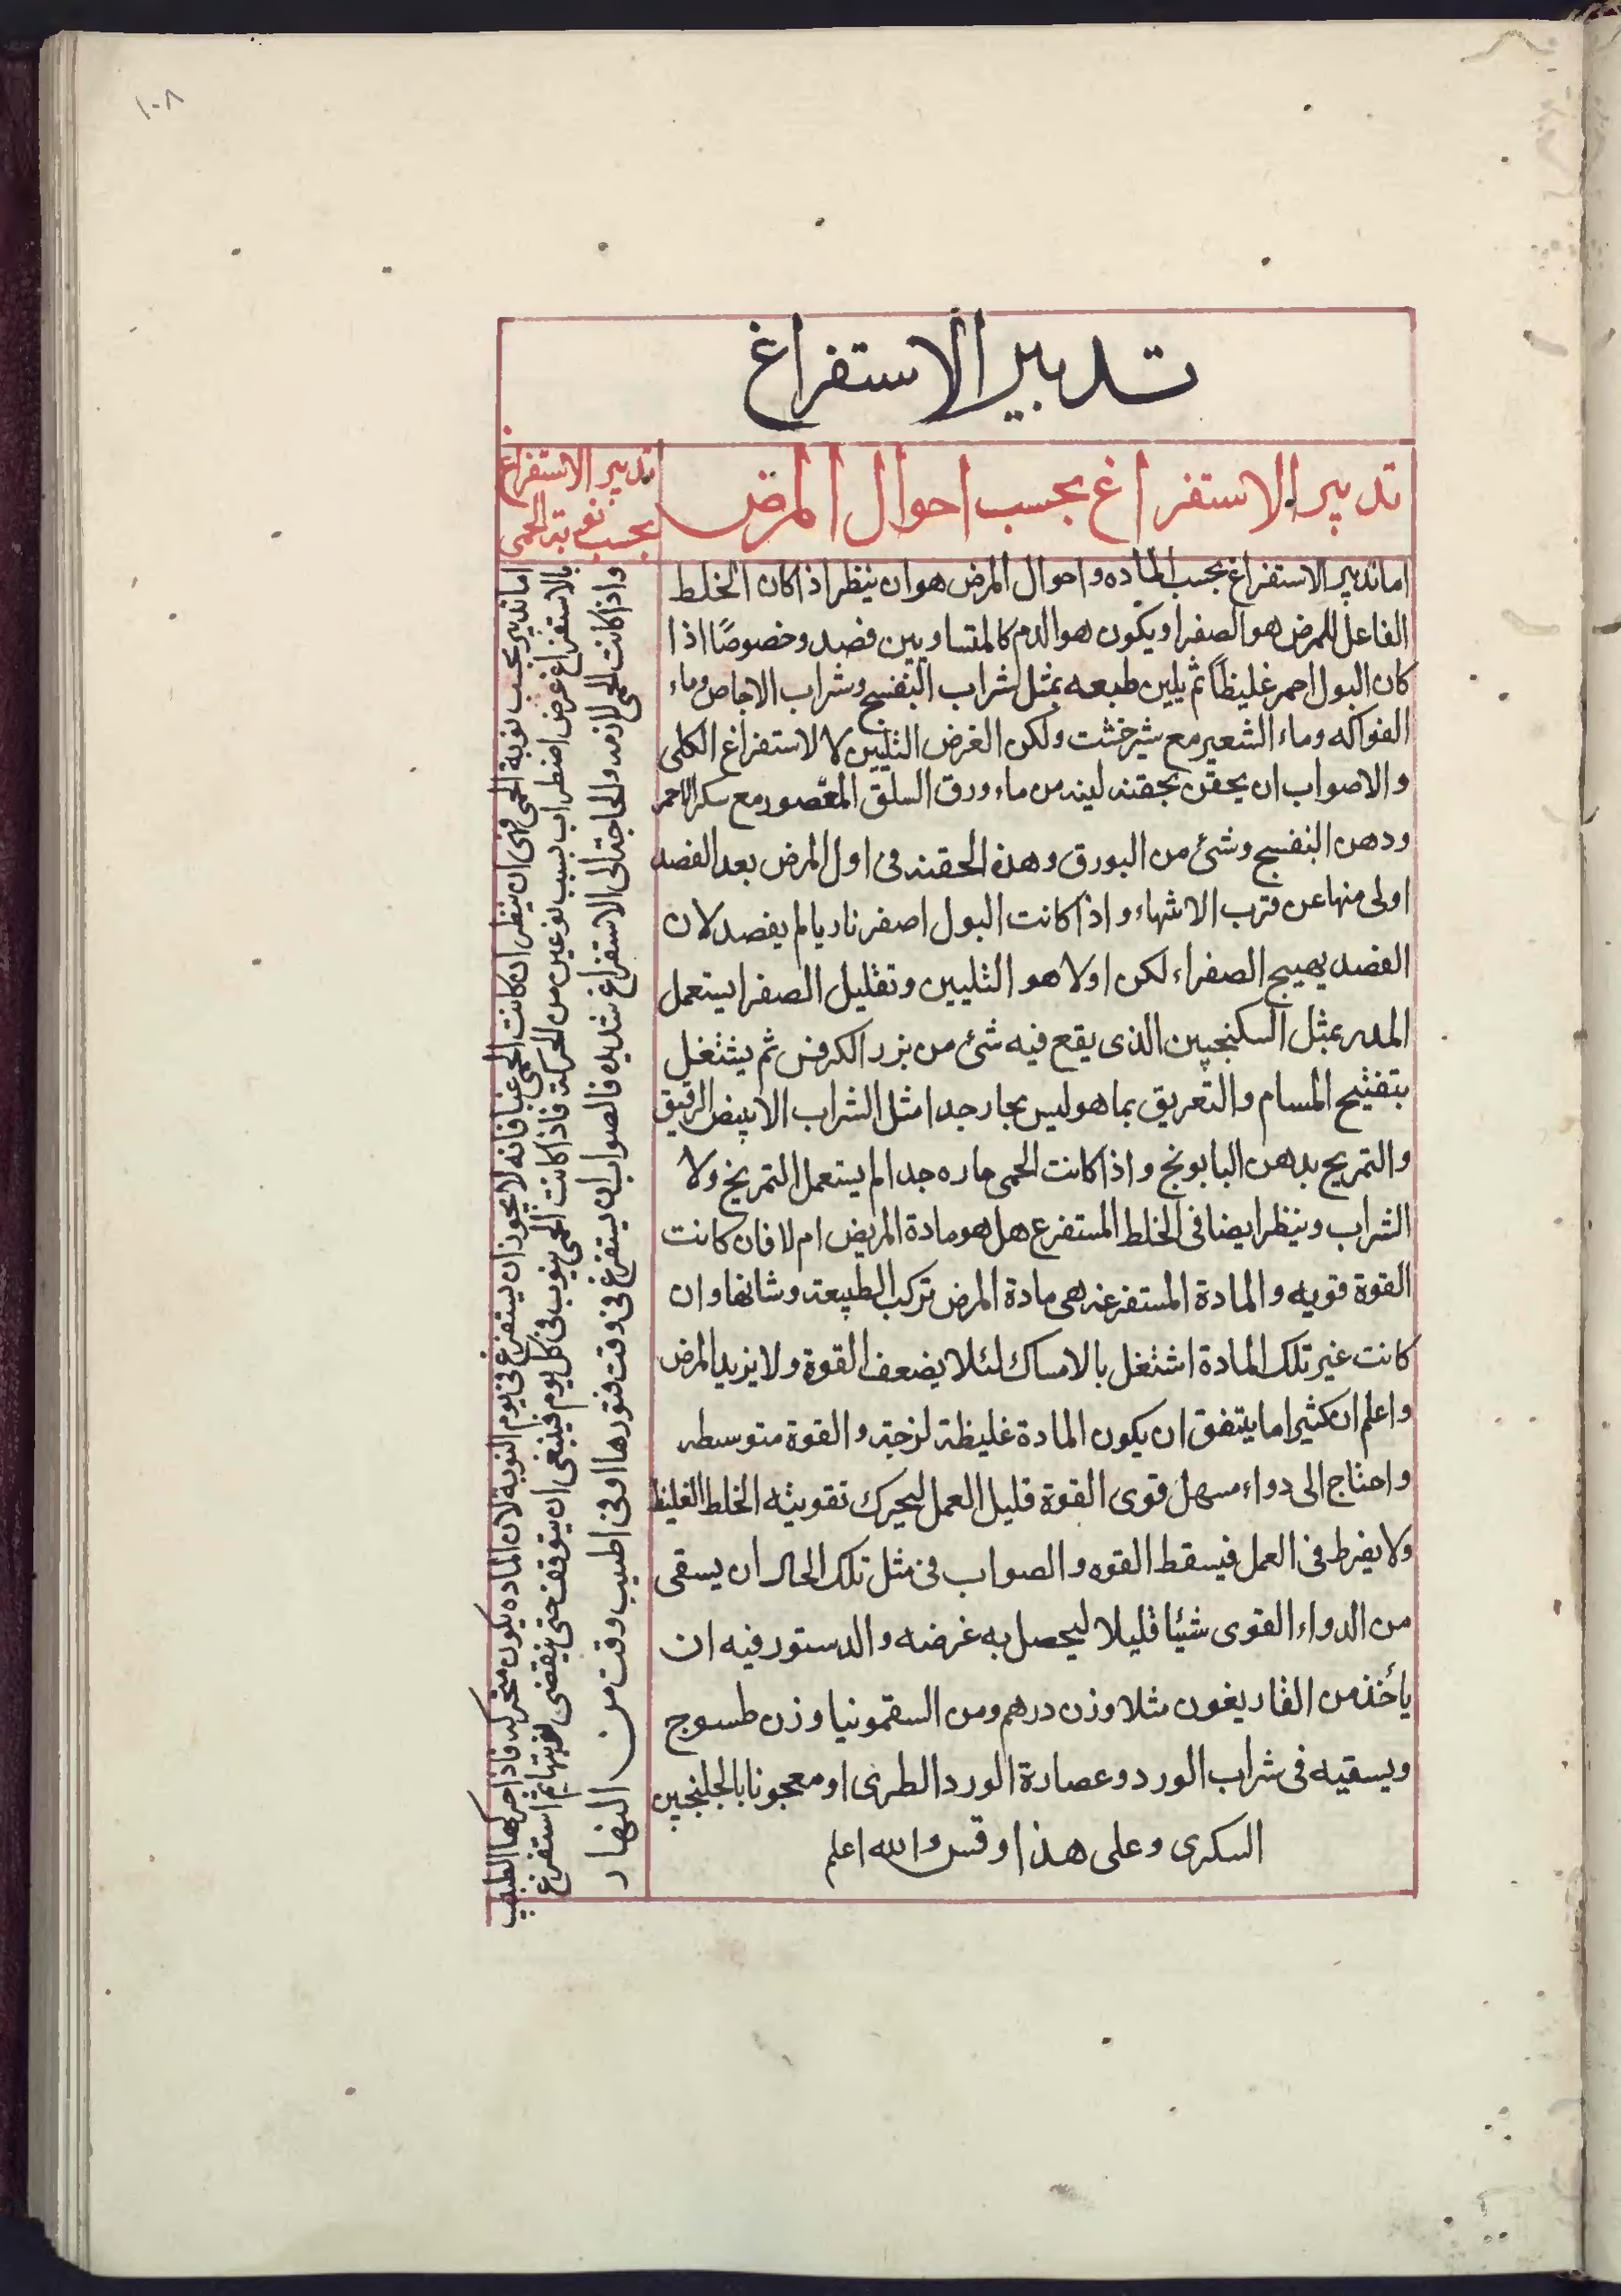 ١٠٨
تدبير الاستفراغ
تدبير الاستفراغ بحسب احوال المرض
تدبير الاستفراغ
بحسب نوبة الحمى
اما تدبير الاستفراغ بحسب الماده واحوال المرض هو ان ينظر اذا كان الخلط
الفاعل للمرض هو الصفرا ويكون هو الدم كالمتساويين فصد وخصوصًا اذا
كان البول احمر غليظاً ثم يلين طبعه بمثل شراب البنفسج وشراب الاجاص وماء
الفواكه وماء الشعير مع شيرخشت ولكن الغرض التليين لا لاستفراغ الكلى
والاصواب ان يحقن بحقنه لينه من ماء ورق السلق المعصور مع سكر الاحمر
ودهن البنفسج وشئ من البورق وهذه الحقنه فى اول المرض بعد الفصد
اولى منها عن قرب الانتهاء واذا كانت البول اصفر ناريا لم يفصد لان
الفصد يهيج الصفراء لكن اولا هو التليين وتقليل الصفرا يستعمل
المدر بمثل السكنجبين الذى يقع فيه شئ من بزر الكرفس ثم يشتغل
بتفتيح المسام والتعريق بما هو ليس بحار جدا مثل الشراب الابيض الرقيق
والتمريخ بدهن البابونج واذا كانت الحمى حاره جدا لم يستعمل التمريخ ولا
الشراب وينظر ايضا فى الخلط المستفرغ هل هو مادة المريض ام لا فان كانت
القوة قويه والمادة المستفرغه هى مادة المرض تركب الطبيعه وشانها وان
كانت غير تلك المادة اشتغل بالامساك لئلا يضعف القوة ولا يزيد المرض
واعلم ان كثيرا ما يتفق ان يكون المادة غليظة لزجة والقوة متوسطه
واحتاج الى دواء مسهل قوى القوة قليل العمل ليحرك تقويته الخلط الغليظ
ولا يفرط فى العمل فيسقط القوه والصواب فى مثل تلك الحال ان يسقى
من الدواء القوى شيئا قليلا ليحصل به غرضه والدستور فيه ان
يأخذ من الغاريغون مثلا وزن درهم ومن السقمونيا وزن طسوج
ويسقيه فى شراب الورد وعصارة الورد الطرى او معجونا بالجلنجبين
السكرى وعلى هذا وقس والله اعلم
اما تدبير بحسب نوبة الحمى فهى ان ينظر ان كانت الحمى غبا فانه لا يجوز ان يستفرغ فى يوم النوبة لان الماده يكون متحركه فاذا حركها الطبيب
بالاستفراغ عرض اضطراب بسبب نوعين من الحركة فاذا كانت الحمى ينوب فى كل يوم فينبغى ان يتوقف حتى ينقضى نوبتها ثم استفرغ
واذا كانت الحمى لازمه والحاجة الى الاستفراغ شديده فالصواب ان يستفرغ فى وقت فتورها او فى اطيب وقت من النهار